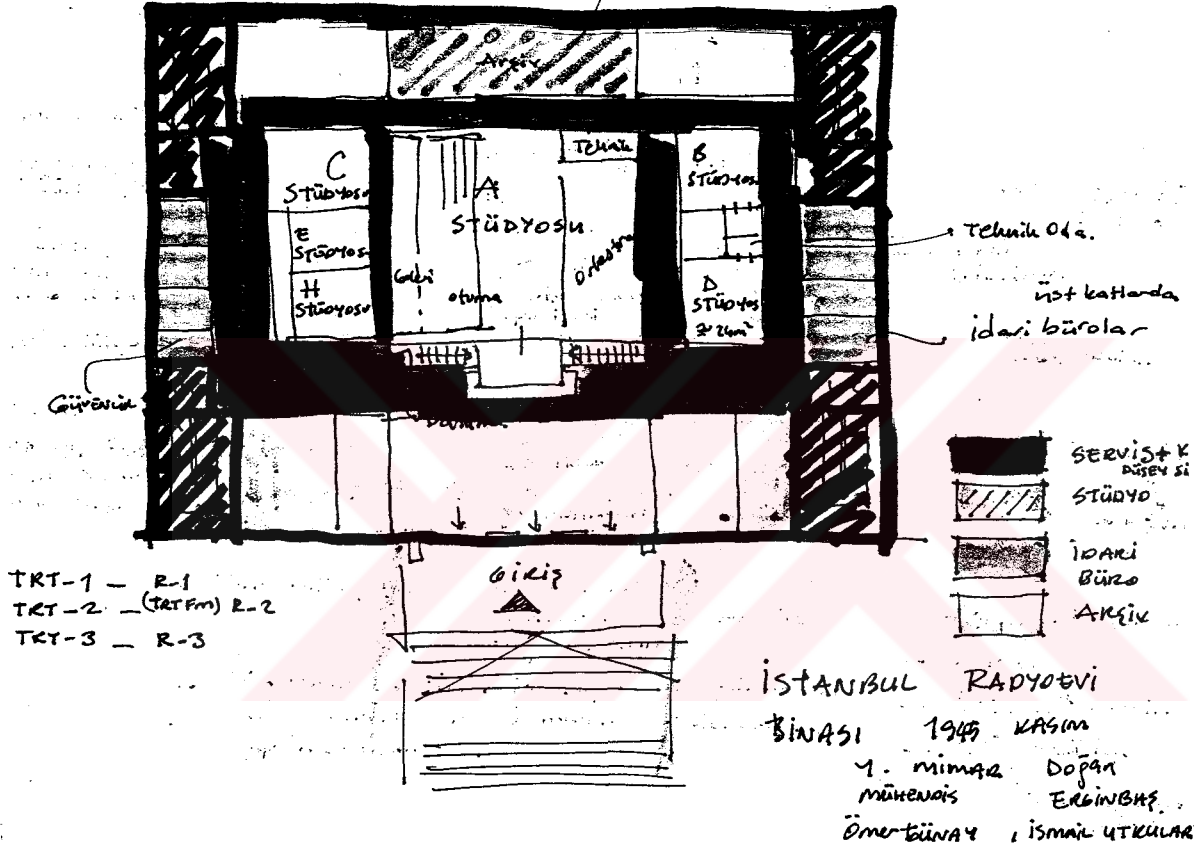 Arşiv
C
STÜDYOSU
E
STÜDYOSU
H
STÜDYOSU
A
STÜDYOSU
Teknik
Galeri
oturma
Orkestra
B
STÜDYOS
D
STÜDYOS
Teknik Oda.
üst katlarda
idari bürolar
GÜVENLİK
SERVİS+K
DÜŞEY Sİ
STÜDYO
İDARİ
BÜRO
ARŞİV
GİRİŞ
TRT-1 — R-1
TRT-2 — (TRT FM) R-2
TRT-3 — R-3
İSTANBUL RADYOEVİ
BİNASI 1945 KASIM
Y. MİMAR Doğan
MÜHENDİS ERGİNBAŞ
Ömer GÜNAY, İSMAİL UTKULAR